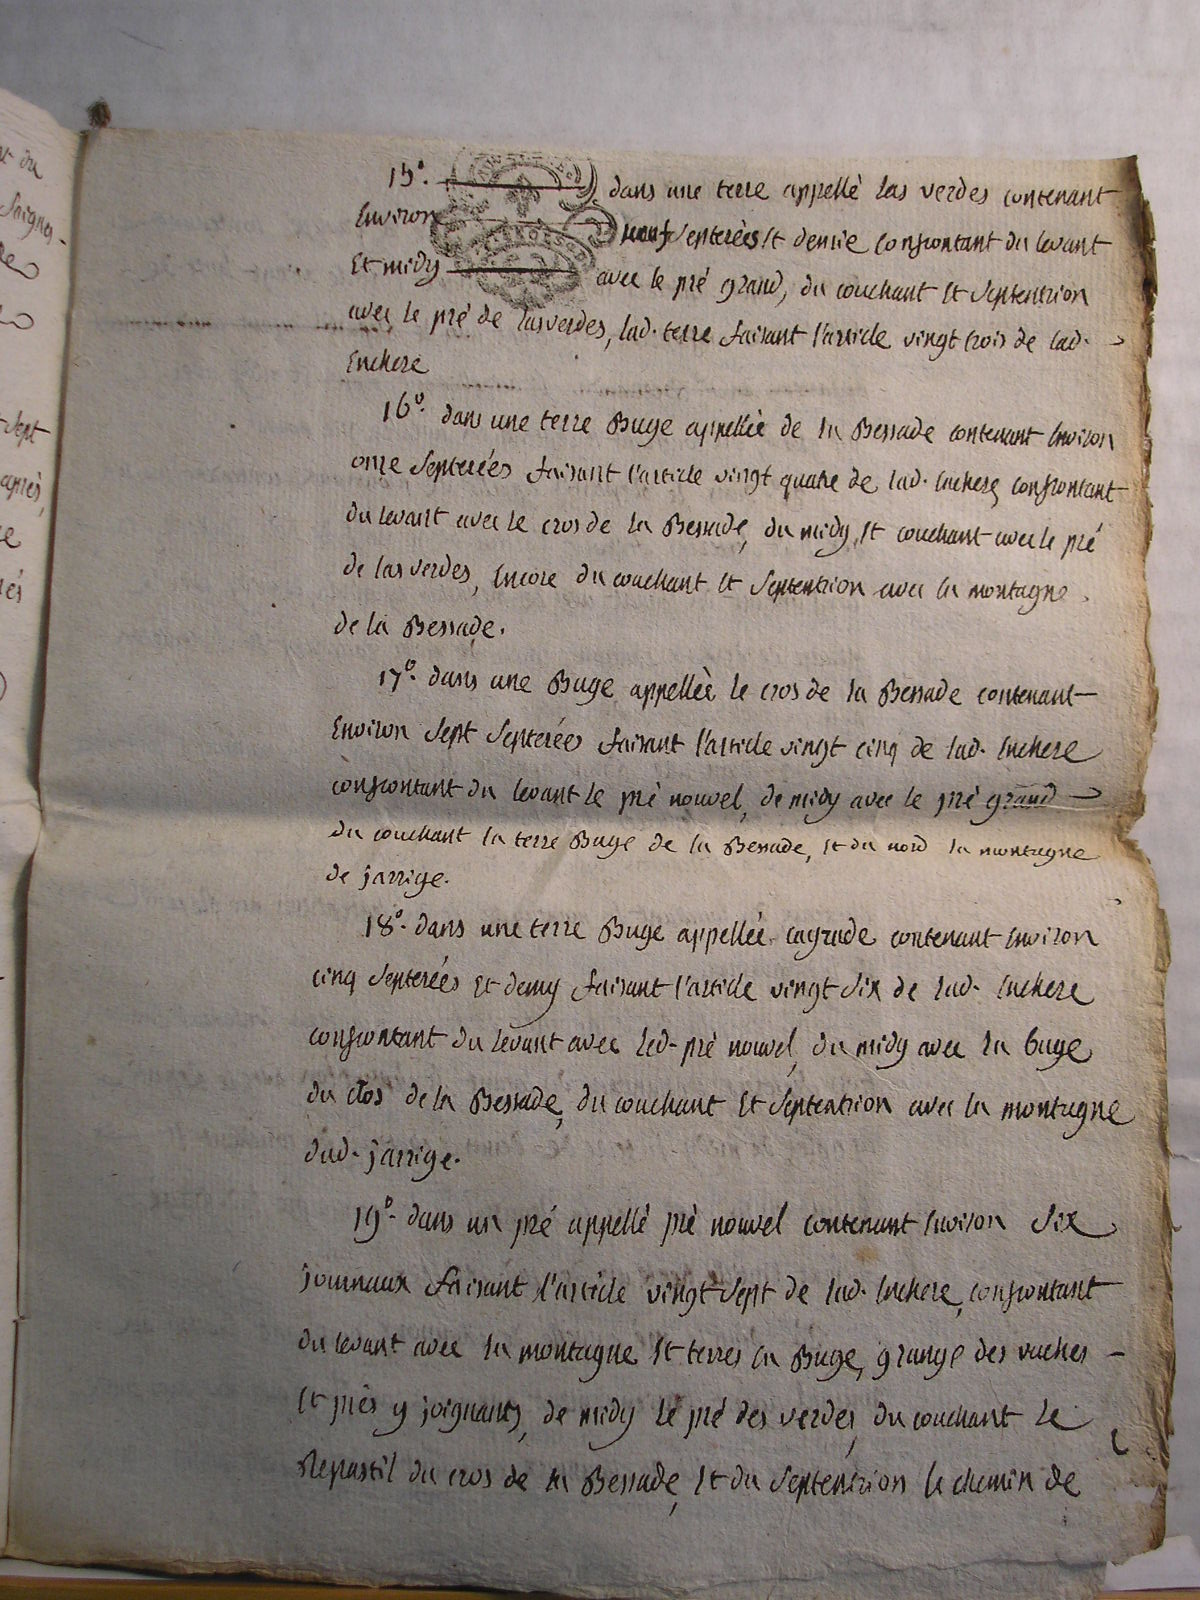 15°. dans une terre appellé las verdes contenant
Environ neuf Septerées Et demie Confrontant du levant
Et midy avec le pré grand, du couchant Et Septentrion
avec le pré de las verdes, lad. terre faisant l'article vingt trois de lad.
Enchere
16°. dans une terre Buge appellée de la Bessade contenant Environ
onze Septerées faisant l'article vingt quatre de lad. Enchere, confrontant
du levant avec le cros de la Bessade, du midy Et couchant avec le pré
de las verdes, Encore du couchant Et Septentrion avec la montagne
de la Bessade.
17°. dans une Buge appellée le cros de la Bessade contenant
Environ Sept Septerées faisant l'article vingt cinq de lad. Enchere
confrontant du levant le pré nouvel, de midy avec le pré grand
du couchant la terre Buge de la Bessade, Et du nord la montagne
de jarrige.
18°. dans une terre Buge appellée cagrade contenant Environ
cinq Septerées Et demy faisant l'article vingt Six de lad. Enchere
confrontant du levant avec led. pré nouvel, du midy avec la buge
du Clos de la Bessade, du couchant Et Septentrion avec la montagne
dud. jarrige.
19°. dans un pré appellé pré nouvel contenant Environ Six
journaux faisant l'article vingt Sept de lad. Enchere, confrontant
du levant avec la montagne Et terres la Buge, grange des vaches
Et prés y joignants, de midy le pré des verdes, du couchant le
Repastil du cros de la Bessade, Et du Septentrion le chemin de